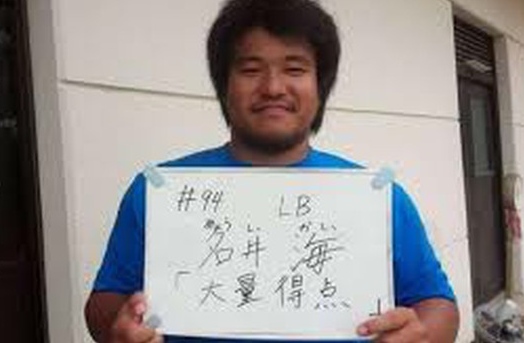 #94 LB
みょう い かい
名井 海
「大量得点」